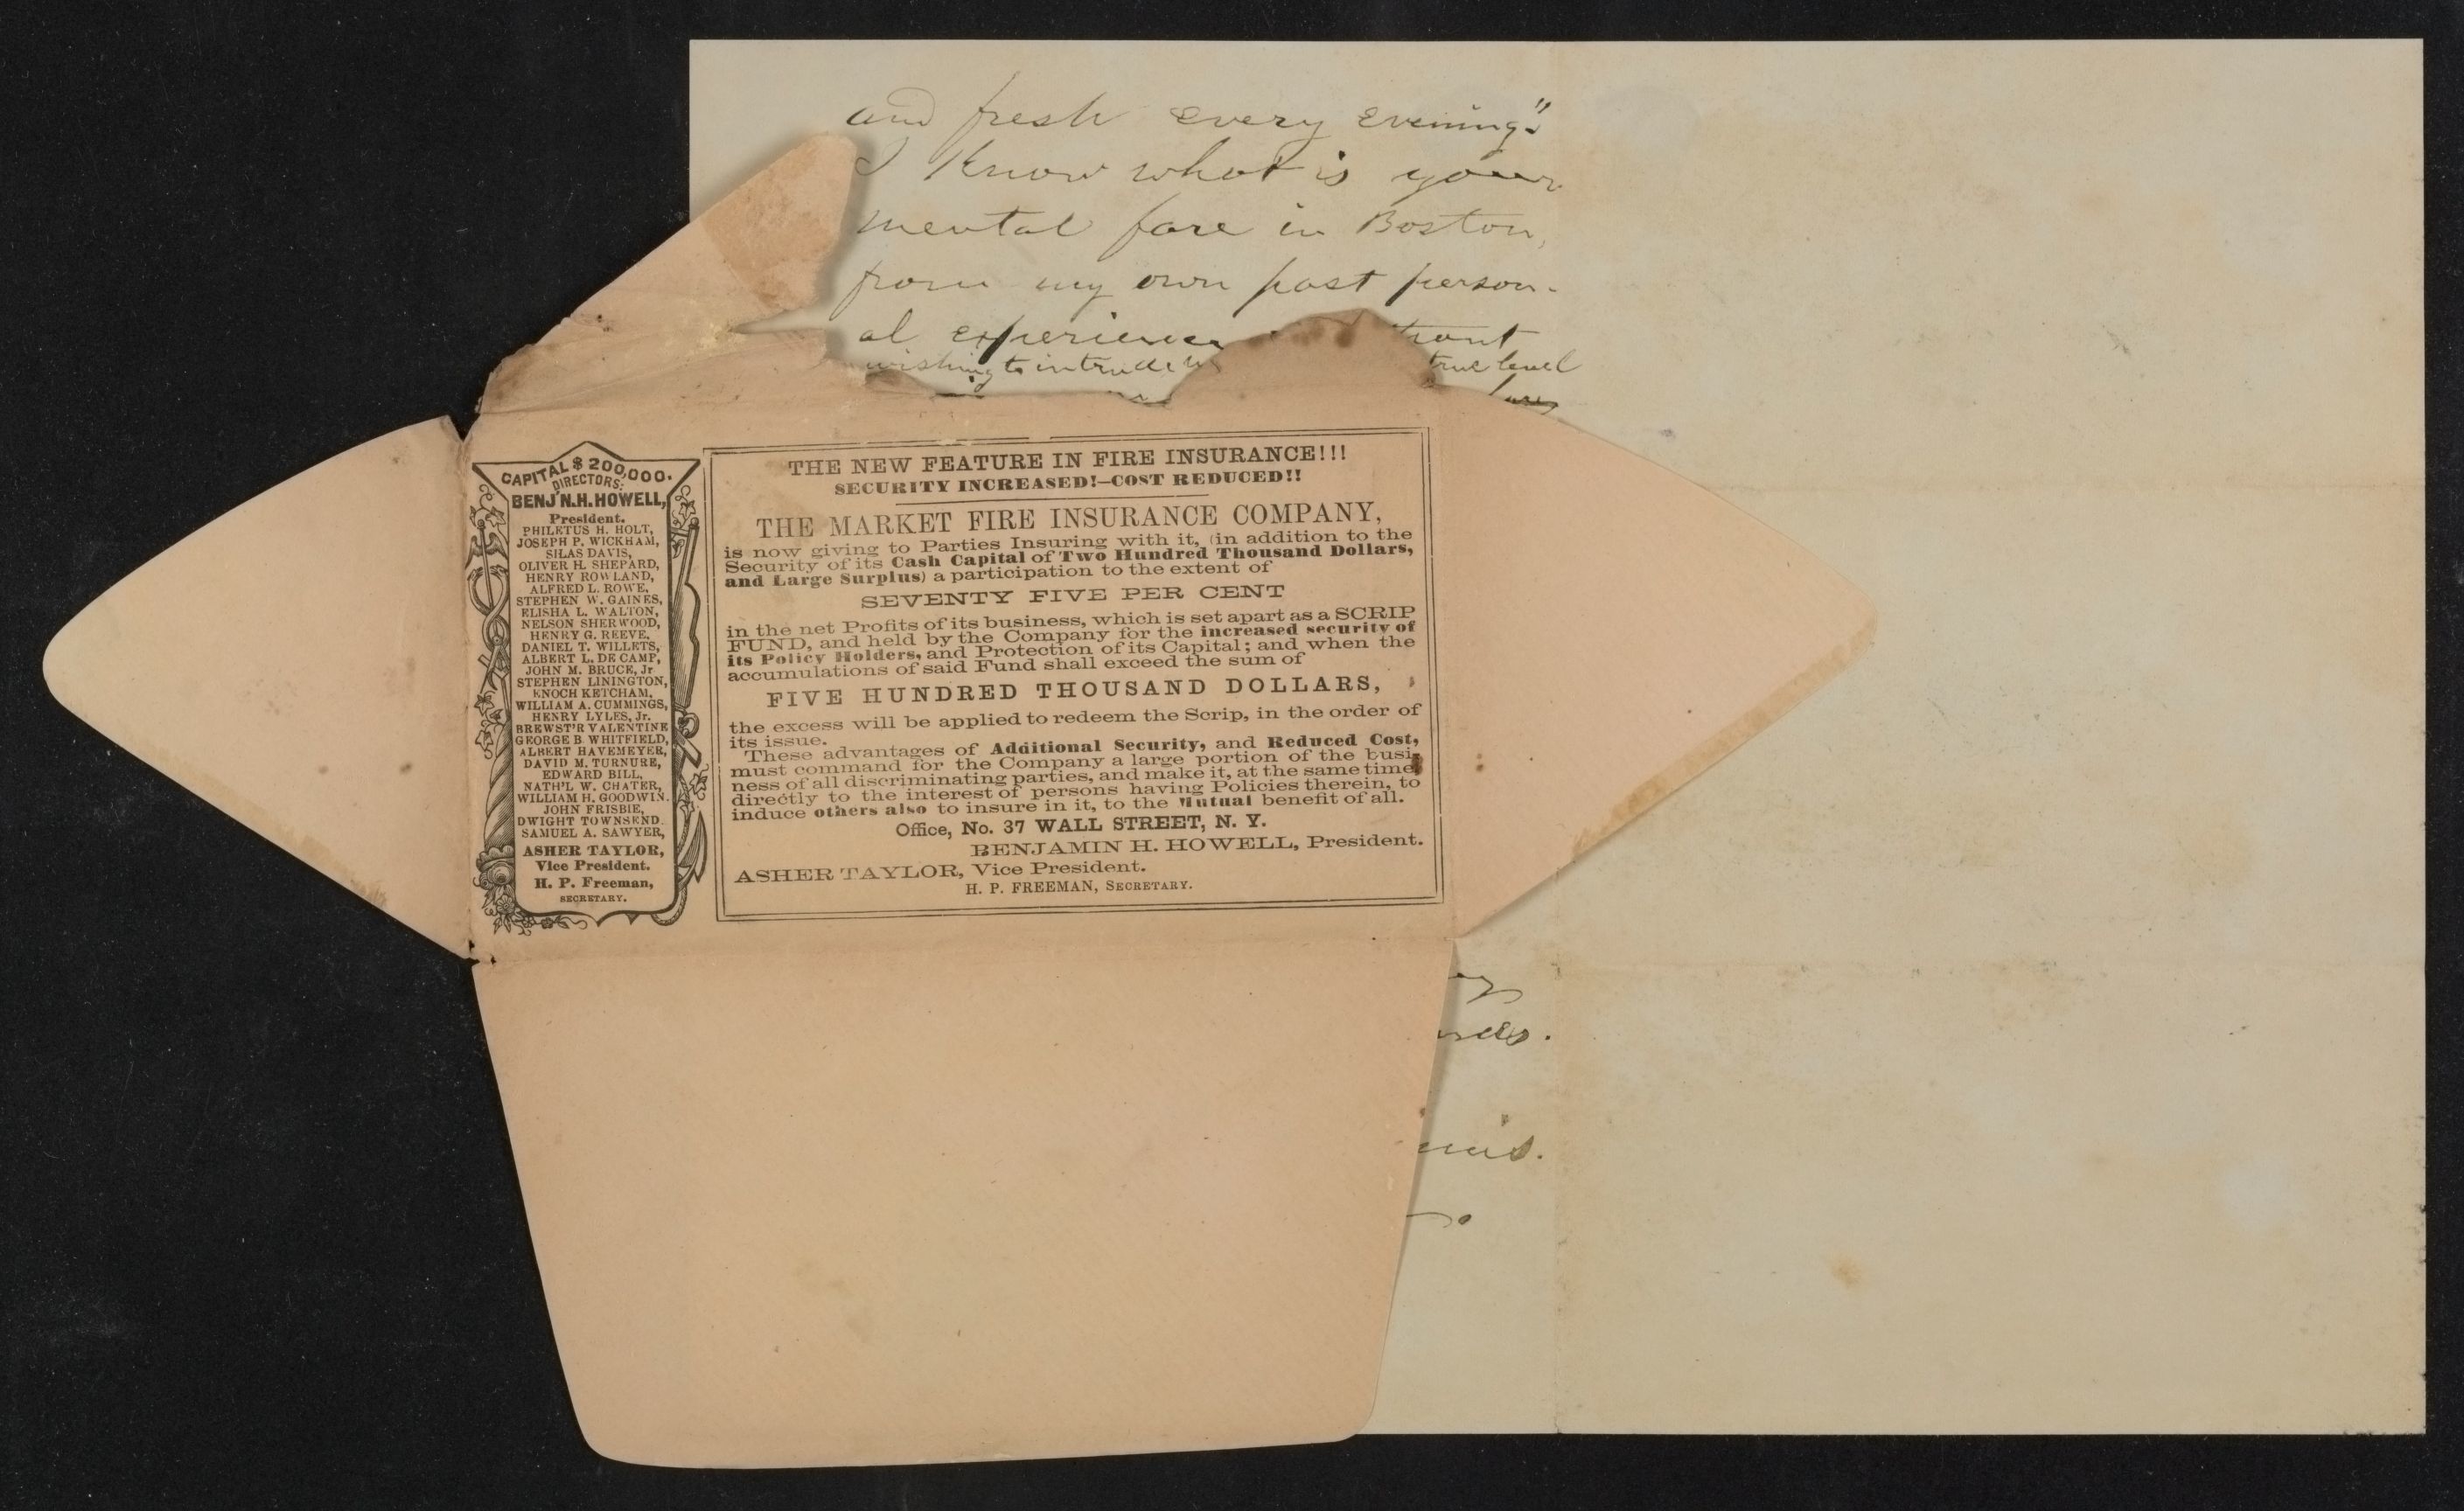 and fresh every evening."
I know what is your
mental fare in Boston,
from my own past person-
al experience
wishing to intrude true level
CAPITAL $200,000.
DIRECTORS:
BENJ'N.H.HOWELL,
President.
PHILETUS H. HOLT,
JOSEPH P. WICKHAM,
SILAS DAVIS,
OLIVER H. SHEPARD,
HENRY ROWLAND,
ALFRED L. ROWE,
STEPHEN W. GAINES,
ELISHA L. WALTON,
NELSON SHERWOOD,
HENRY G. REEVE,
DANIEL T. WILLETS,
ALBERT L. DE CAMP,
JOHN M. BRUCE, Jr
STEPHEN LININGTON,
ENOCH KETCHAM,
WILLIAM A. CUMMINGS,
HENRY LYLES, Jr.
BREWST'R VALENTINE
GEORGE B. WHITFIELD,
ALBERT HAVEMEYER,
DAVID M. TURNURE,
EDWARD BILL,
NATH'L W. CHATER,
WILLIAM H. GOODWIN.
JOHN FRISBIE,
DWIGHT TOWNSEND.
SAMUEL A. SAWYER,
ASHER TAYLOR,
Vice President.
H. P. Freeman,
SECRETARY.
THE NEW FEATURE IN FIRE INSURANCE!!!
SECURITY INCREASED!—COST REDUCED!!
THE MARKET FIRE INSURANCE COMPANY,
is now giving to Parties Insuring with it, (in addition to the
Security of its Cash Capital of Two Hundred Thousand Dollars,
and Large Surplus) a participation to the extent of
SEVENTY FIVE PER CENT
in the net Profits of its business, which is set apart as a SCRIP
FUND, and held by the Company for the increased security of
its Policy Holders, and Protection of its Capital; and when the
accumulations of said Fund shall exceed the sum of
FIVE HUNDRED THOUSAND DOLLARS,
the excess will be applied to redeem the Scrip, in the order of
its issue.
These advantages of Additional Security, and Reduced Cost,
must command for the Company a large portion of the busi-
ness of all discriminating parties, and make it, at the same time
directly to the interest of persons having Policies therein, to
induce others also to insure in it, to the Mutual benefit of all.
Office, No. 37 WALL STREET, N. Y.
BENJAMIN H. HOWELL, President.
ASHER TAYLOR, Vice President.
H. P. FREEMAN, SECRETARY.